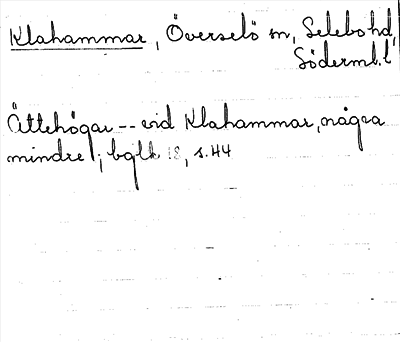 Klahammar, Överselö sn, Selebo hd,
Söderml. l
Ättehögar -- vid Klahammar, några
mindre!; bglk 18, s. 44